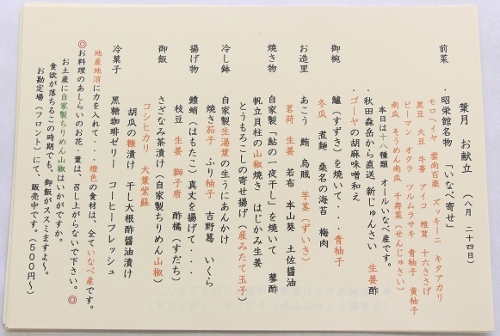 葉月 お献立 (八月 二十四日)
前菜 ・昭栄館名物 「いなべ寄せ」
モロヘイヤ 雲南百薬 ズッキーニ キタアカリ
黒豆 大豆 牛蒡 アイコ 椎茸 十六ささげ
ピーマン オクラ ツルムラサキ 青柚子 黄柚子
南瓜 そうめん南瓜 千寿菊(せんじゅぎく)
本日は十八種類 オールいなべ産です。
・秋田森岳から直送 新じゅんさい 生姜酢
・ゴーヤの胡麻味噌和え
御椀 鱸(すずき)を焼いて・・・青柚子
冬瓜 煮麺 桑名の海苔 梅肉
お造里 あこう 鮪 烏賊 芋茎(ずいき)
茗荷 生姜 若布 本山葵 土佐醤油
焼き物 自家製「鮎の一夜干し」を焼いて 蓼酢
帆立月柱の山椒焼き はじかみ生姜
とうもろこしの寄せ揚げ(産みたて玉子)
冷し鉢 自家製生湯葉の生うにあんかけ
焼き茄子 ふり柚子 吉野葛 いくら
揚げ物 (はもたこ)真丈を揚げて・・・
枝豆 生姜 獅子唐 酢橘(すだち)
御飯 さざなみ茶漬け(自家製ちりめん山椒)
コシヒカリ 大葉紫蘇
胡瓜の糠漬け 干し大根酢醤油漬け
冷菓子 黒糖珈琲ゼリー コーヒーフレッシュ
地産地消に力を入れて・・・橙色の食材は、全ていなべ産です。
◎お料理のあしらいのお花・葉は、召し上がらないで下さい。◎
お土産に自家製ちりめん山椒はいかがですか。
食欲が落ちるこの時期でも、御飯がススミますよ〜。
お勘定場(フロント)にて、販売中です。(500円〜)